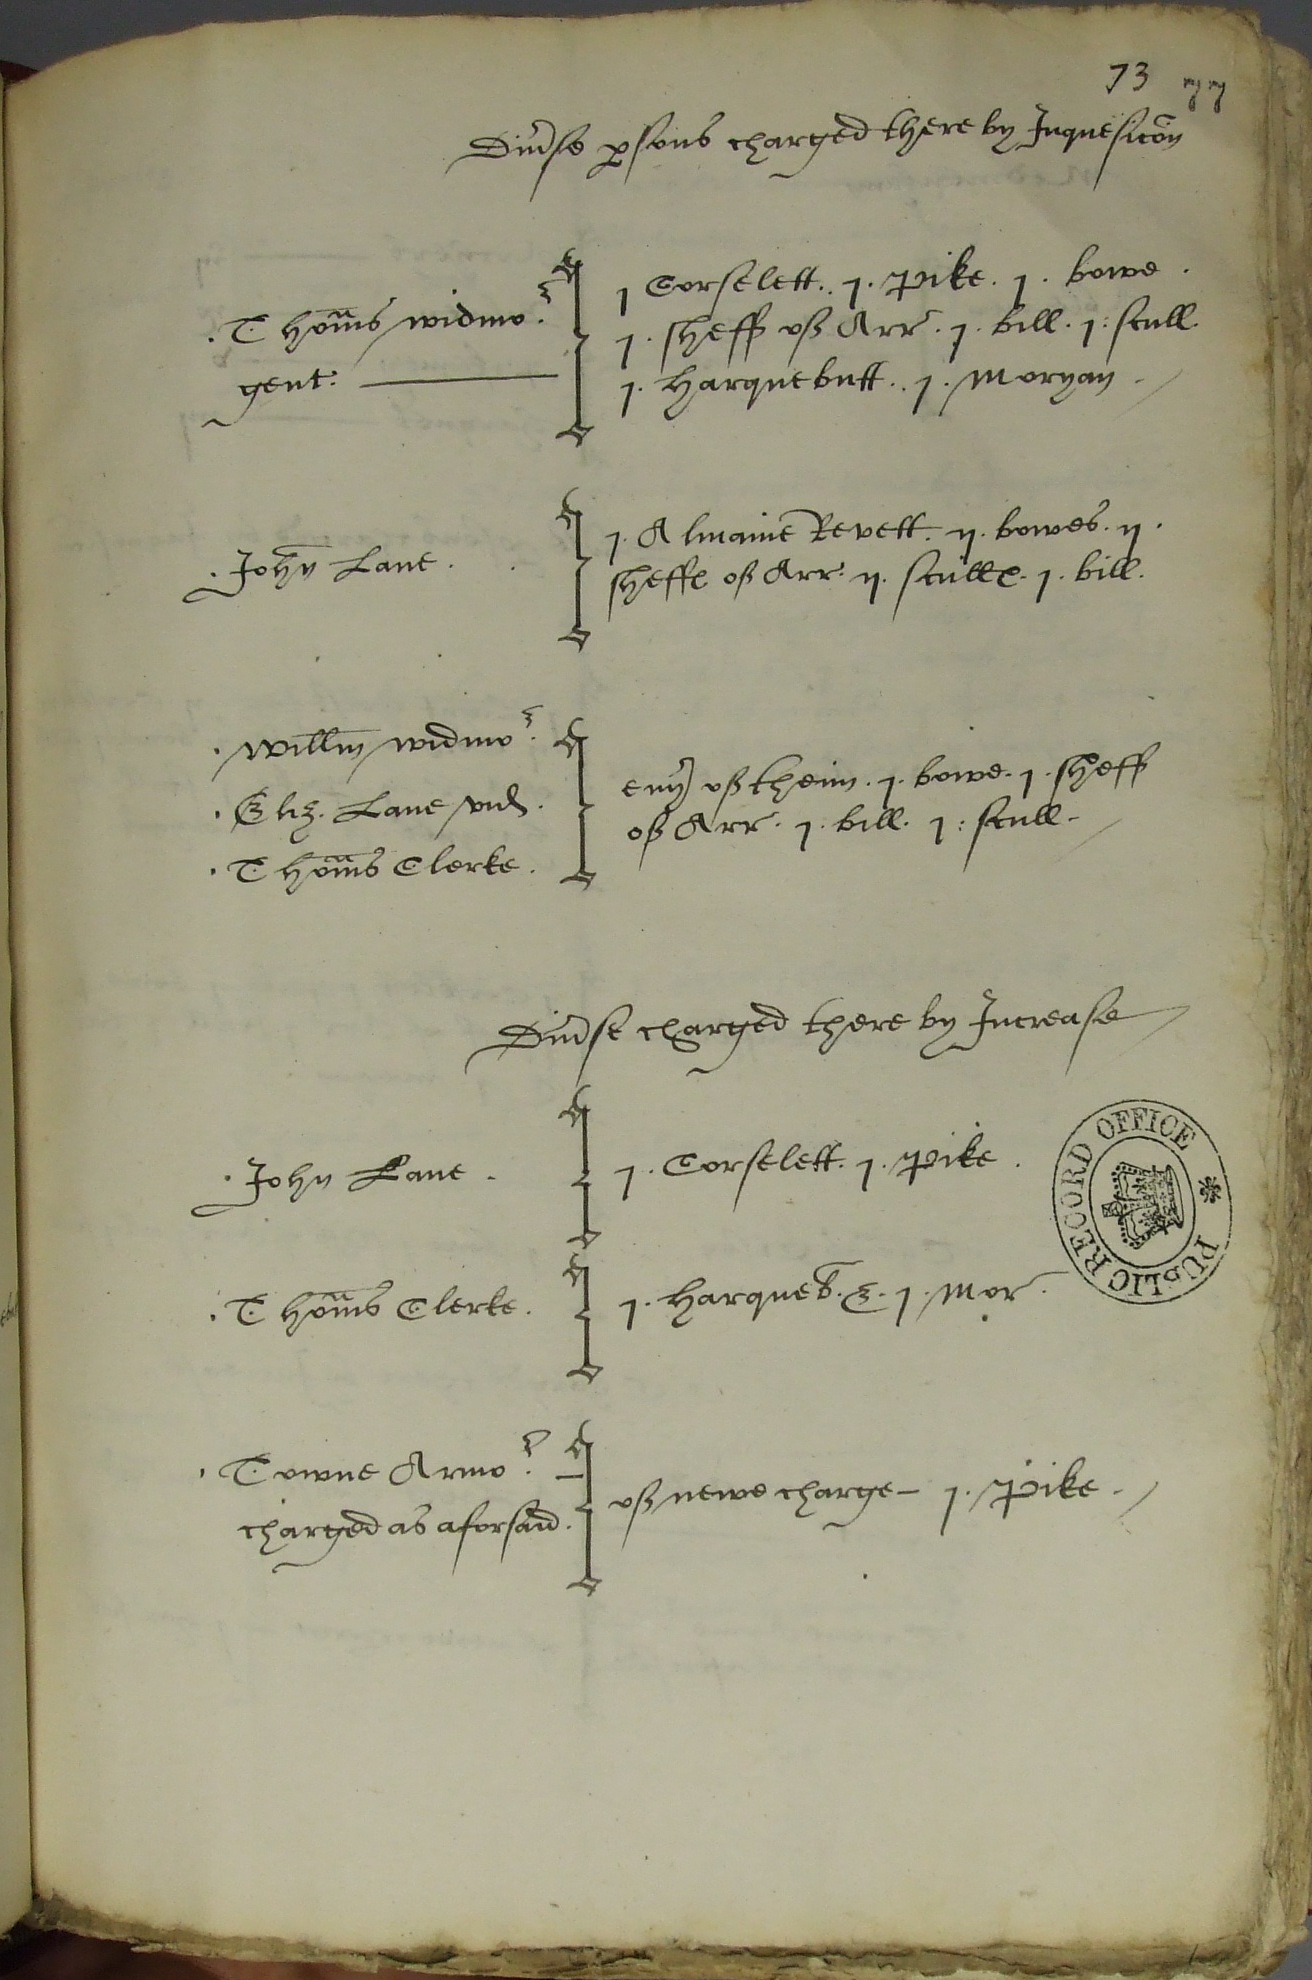 73 77
Diu'se p'sons charged there by Inquesicõn
Thom̃s widmor
gent.
1 Corselett. 1. Pike. 1. bowe.
1. sheff of Arr. 1. bill. 1. scull.
1. Harquebutt. 1. Moryan
John Lane.
1. Almaine Revett. ij. bowes. ij.
sheffes of Arr. ij. sculles. 1. bill.
Willm̃ widmor.
Eliz. Lane vid.
Thom̃s Clerke.
eu'y of theim. 1. bowe. 1. sheff
of Arr. 1. bill. 1. scull.
Diu'se charged there by Increase
John Lane.
1. Corselett. 1. Pike.
Thom̃s Clerke.
1. Harqueb. &. 1. Mor.
Towne Armor.
charged as aforsaid.
of newe charge – 1. Pike.
PUBLIC RECORD OFFICE